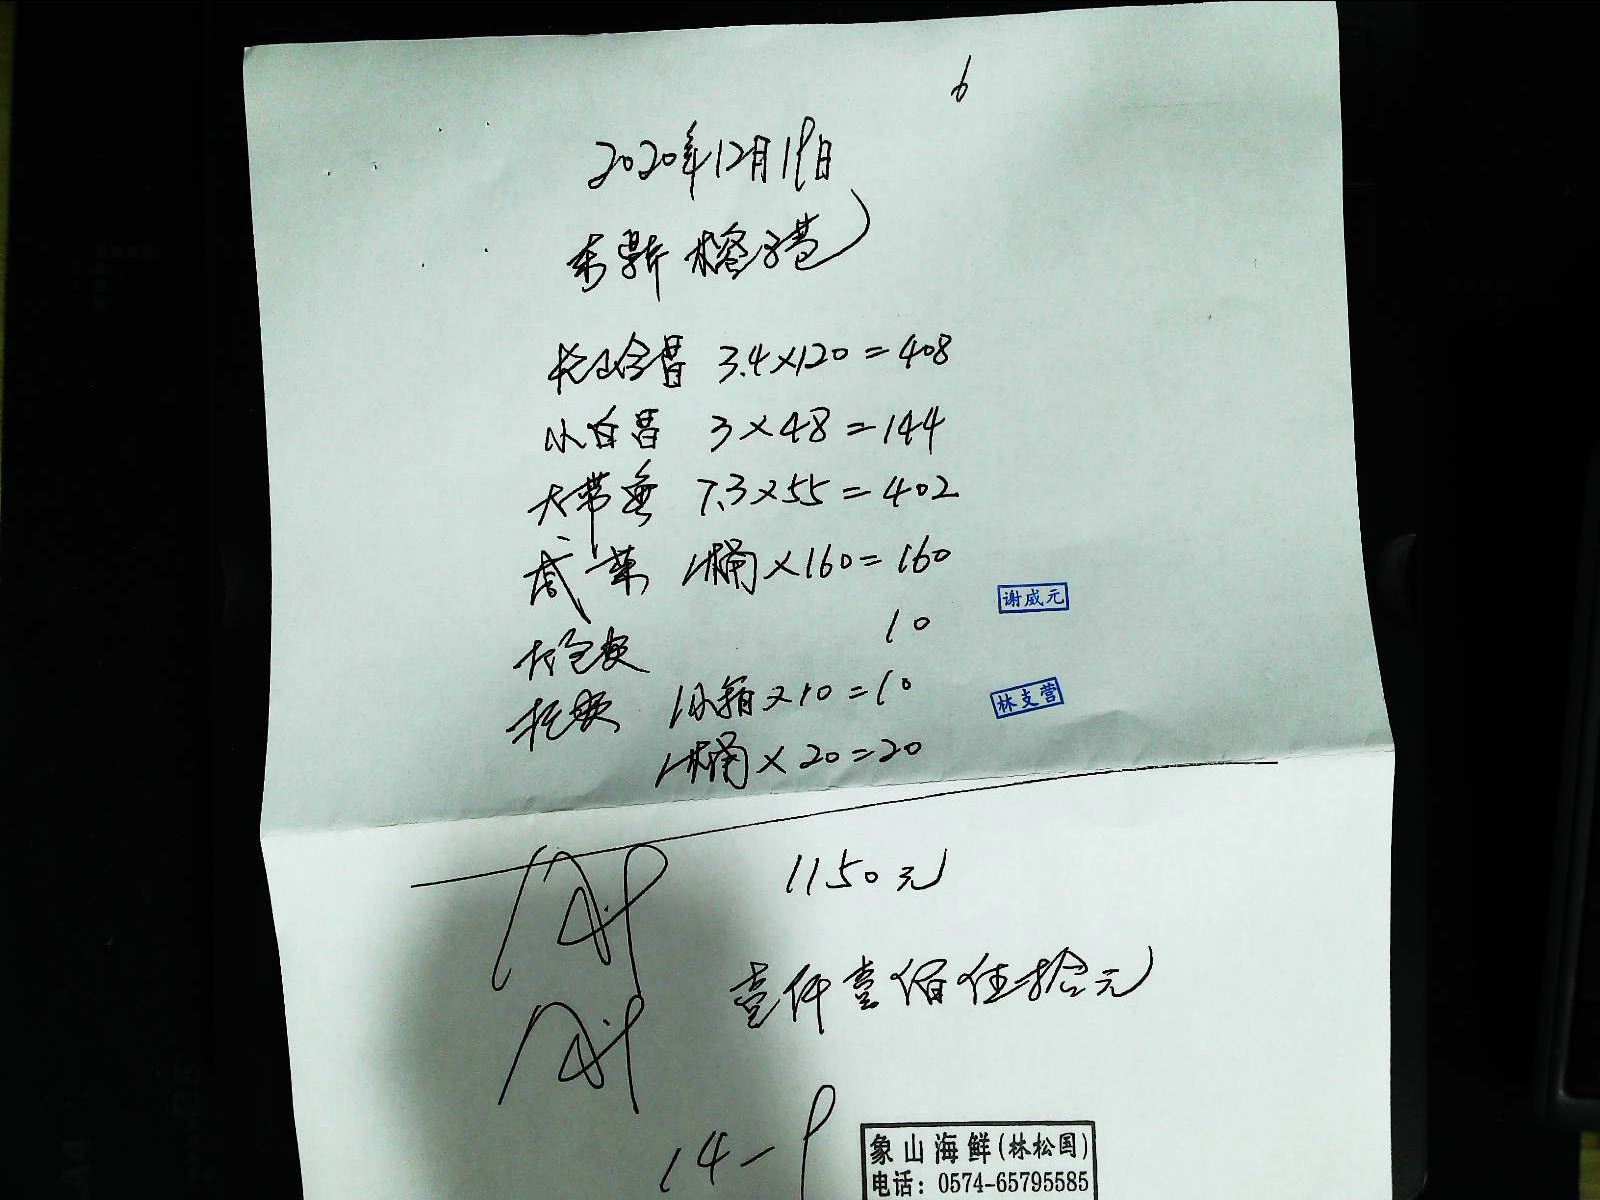 6
2020年12月19日
东新 榕港
长山合昔 3.4×120=408
小白昔 3×48=144
大带鱼 7.3×55=402
咸菜 1桶×160=160
打包费 10
谢威元
托费 1小箱×10=10
林支营
1桶×20=20
1150元
壹仟壹佰伍拾元
14-9
象山海鲜(林松国)
电话：0574-65795585